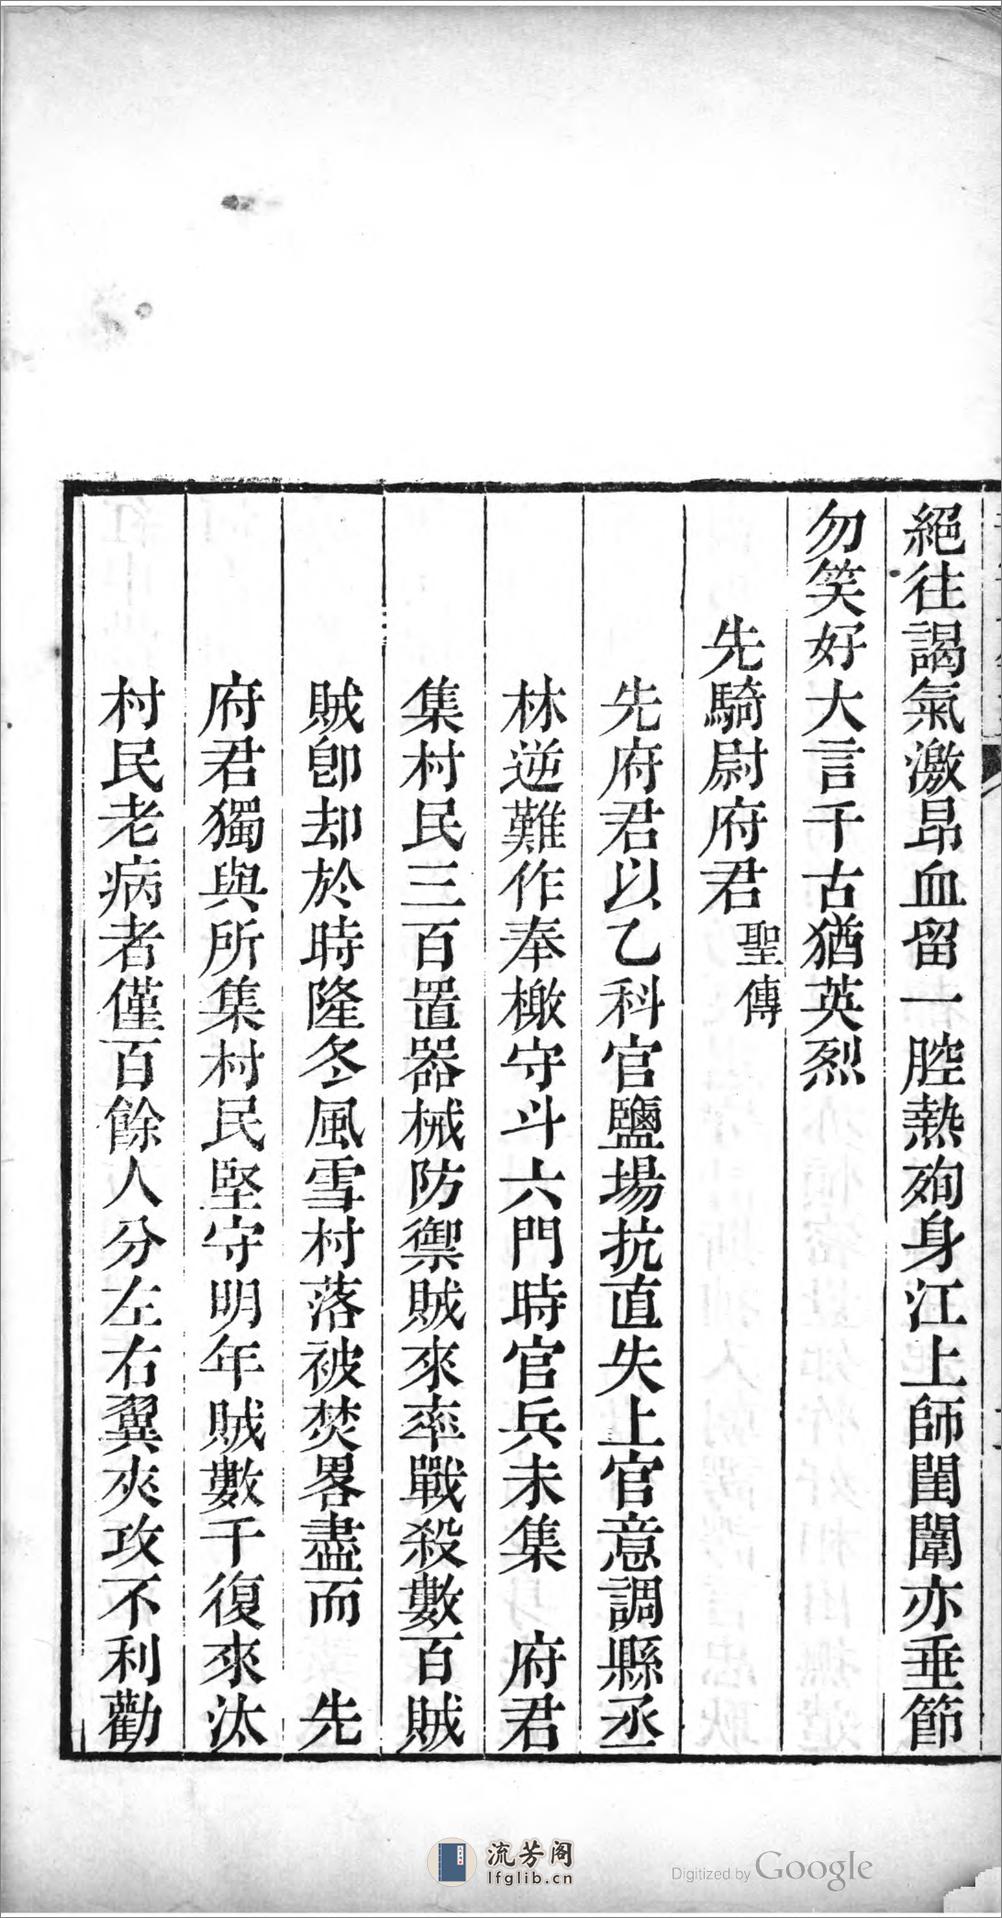 絕往謁氣激昂血留一腔熱殉身江上師閨闈亦垂節
勿笑好大言千古猶英烈
先騎尉府君聖傳
先府君以乙科官鹽場抗直失上官意調縣丞
林逆難作奉檄守斗六門時官兵未集　府君
集村民三百置器械防禦賊來率戰殺數百賊
賊卽却於時隆冬風雪村落被焚畧盡而　先
府君獨與所集村民堅守明年賊數千復來汰
村民老病者僅百餘人分左右翼夾攻不利勸
流芳阁
lfglib.cn
Digitized by Google